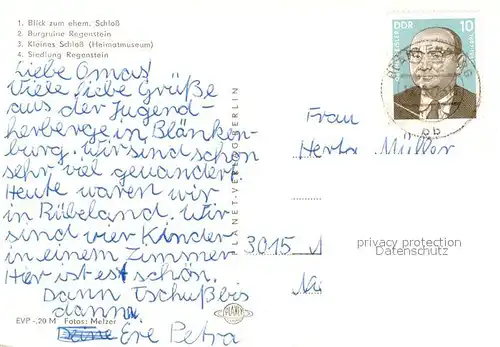 1. Blick zum ehem. Schloß
2. Burgruine Regenstein
3. Kleines Schloß (Heimatmuseum)
4. Siedlung Regenstein
Liebe Omas!
Viele liebe Grüße
aus der Jugend-
herberge in Blänken-
burg. Wir sind schon
sehr vol gewandert.
Heute waren wir
in Rübeland. Wir
sind vier Kinder
in einem Zimmer
Hier ist est schön.
Dann Tschußbis
danna.
Eve Petra
EVP -,20 M Fotos: Melzer
PLANET-VERLAG BERLIN
PLANET
DDR 10
Frau
Herta Müller
3015
privacy protection
Datenschutz
Na